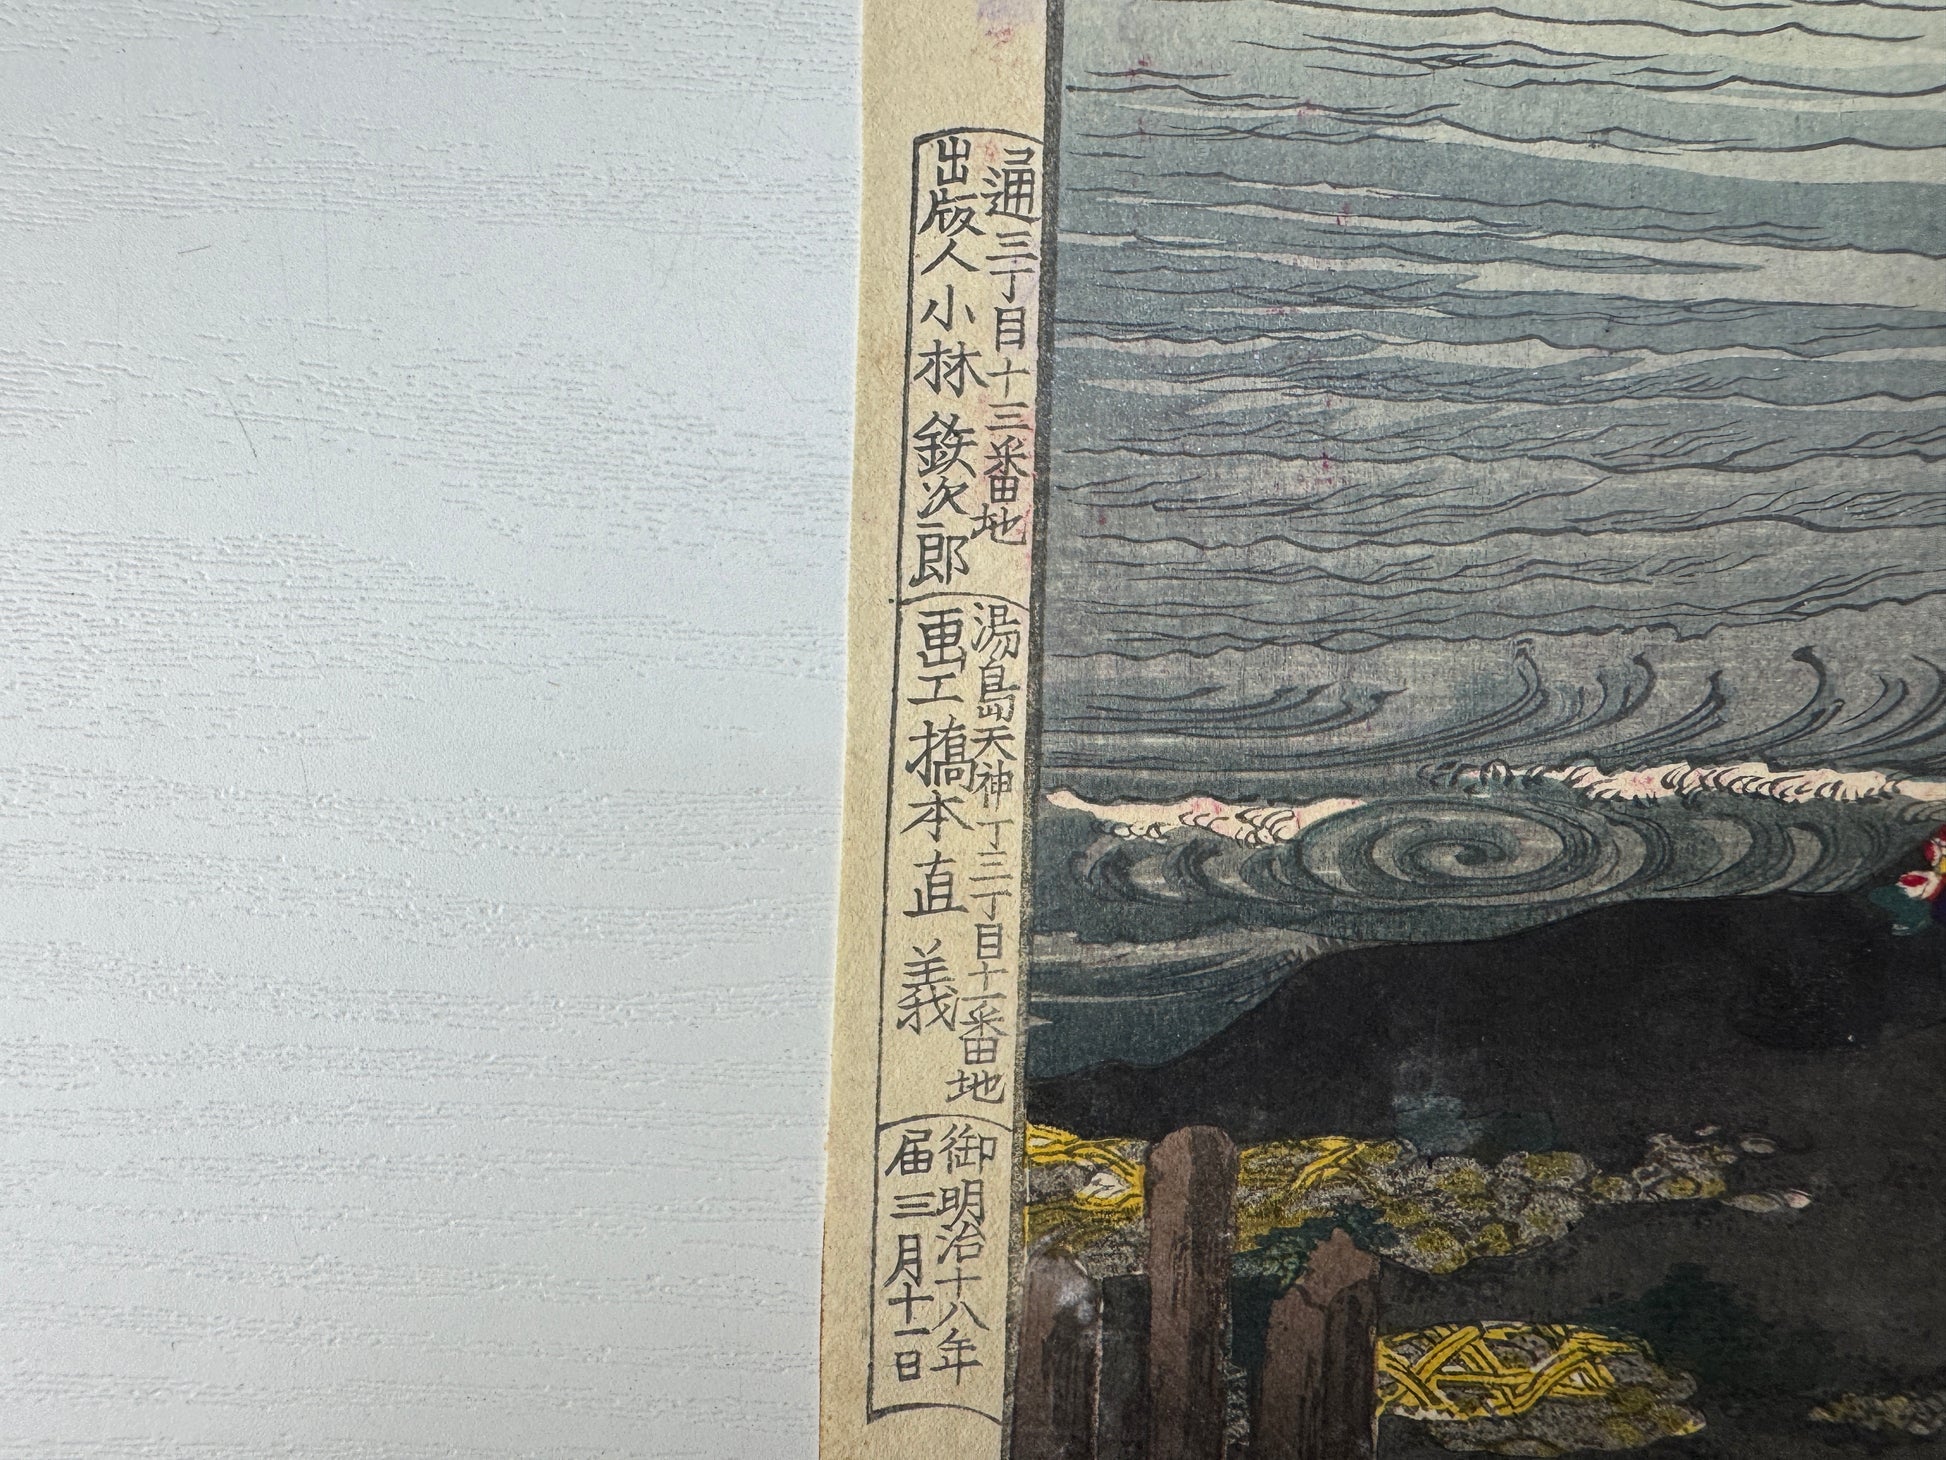 通三丁目十三番地
出版人 小林鉄次郎
湯島天神丁三丁目十一番地
画工 橋本直義
御届 明治十八年
三月十一日